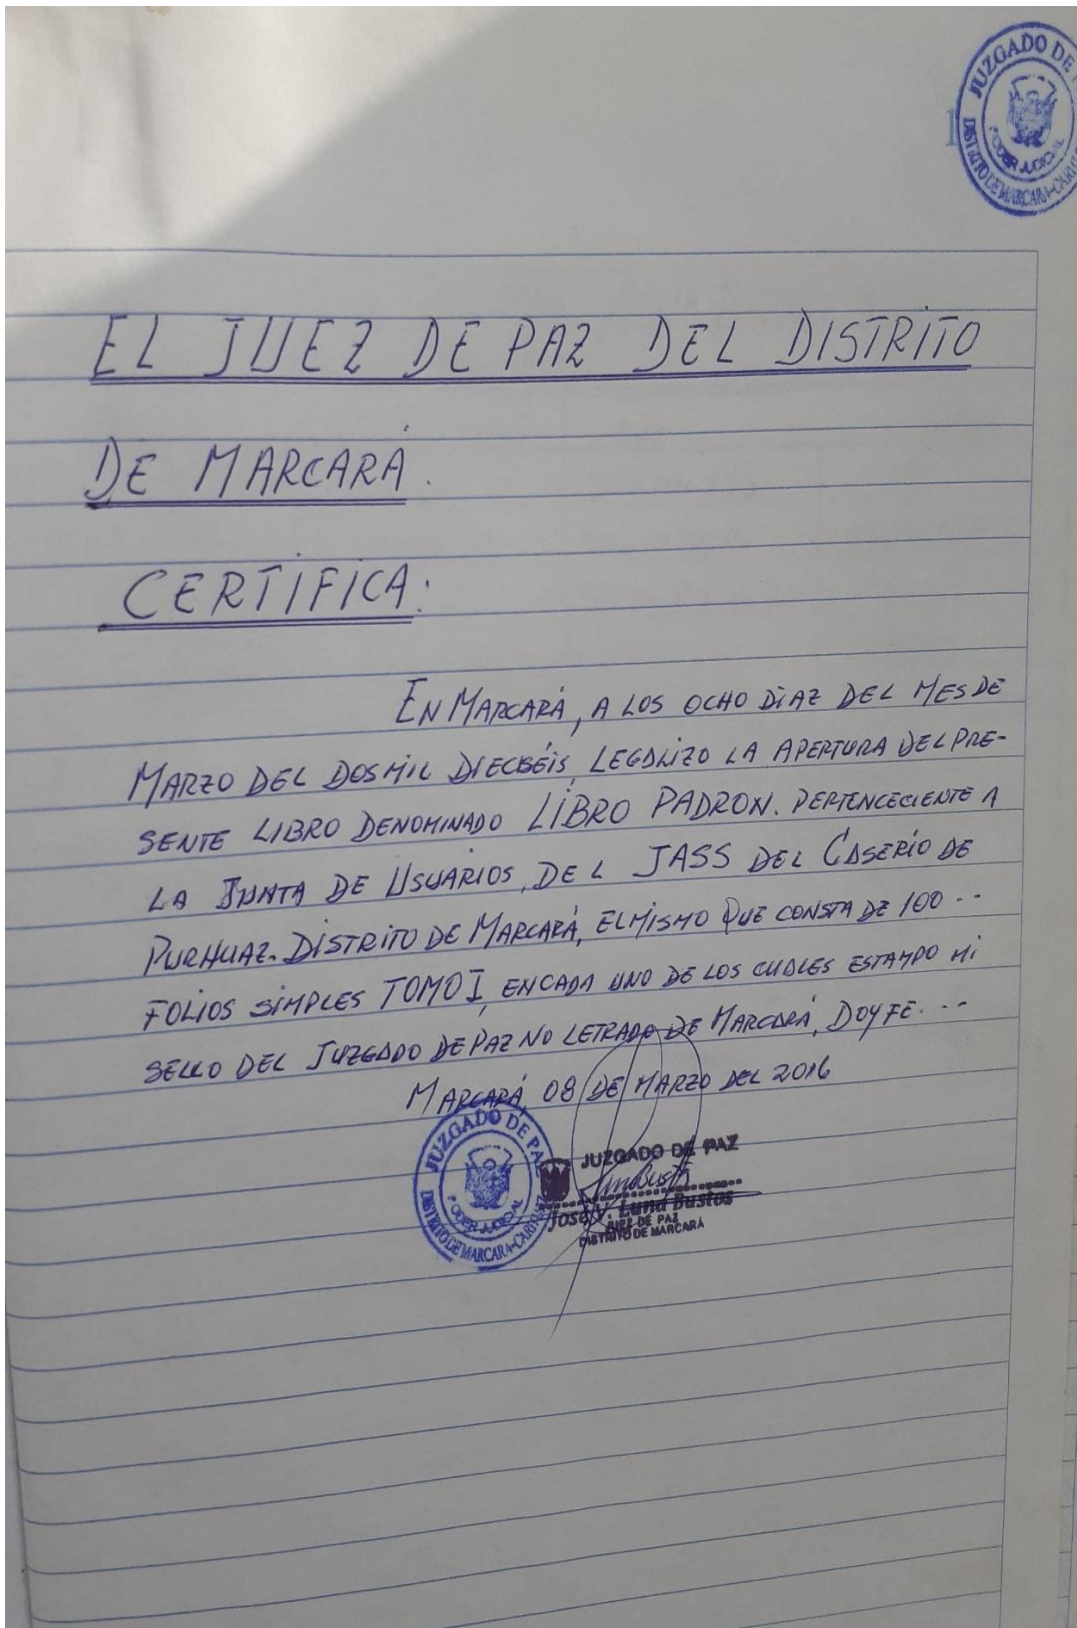 1
JUZGADO DE
PODER JUDICIAL
DISTRITO DE MARCARA-CARHUAZ
EL JUEZ DE PAZ DEL DISTRITO
DE MARCARÁ.
CERTIFICA:
EN MARCARÁ, A LOS OCHO DIAZ DEL MES DE
MARZO DEL DOSMIL DIECISÉIS, LEGALIZO LA APERTURA DEL PRE-
SENTE LIBRO DENOMINADO LIBRO PADRON. PERTENCECIENTE A
LA JUNTA DE USUARIOS, DEL JASS DEL CASERÍO DE
PURHUAZ. DISTRITO DE MARCARÁ, EL MISMO QUE CONSTA DE 100 --
FOLIOS SIMPLES TOMO I, EN CADA UNO DE LOS CUALES ESTAMPO MI
SELLO DEL JUZGADO DE PAZ NO LETRADO DE MARCARÁ, DOY FE. --
MARCARÁ, 08 DE MARZO DEL 2016
JUZGADO DE PAZ
PODER JUDICIAL
DISTRITO DE MARCARA-CARHUAZ
JUZGADO DE PAZ
Jose V. Luna Bustos
JUEZ DE PAZ
DISTRITO DE MARCARÁ